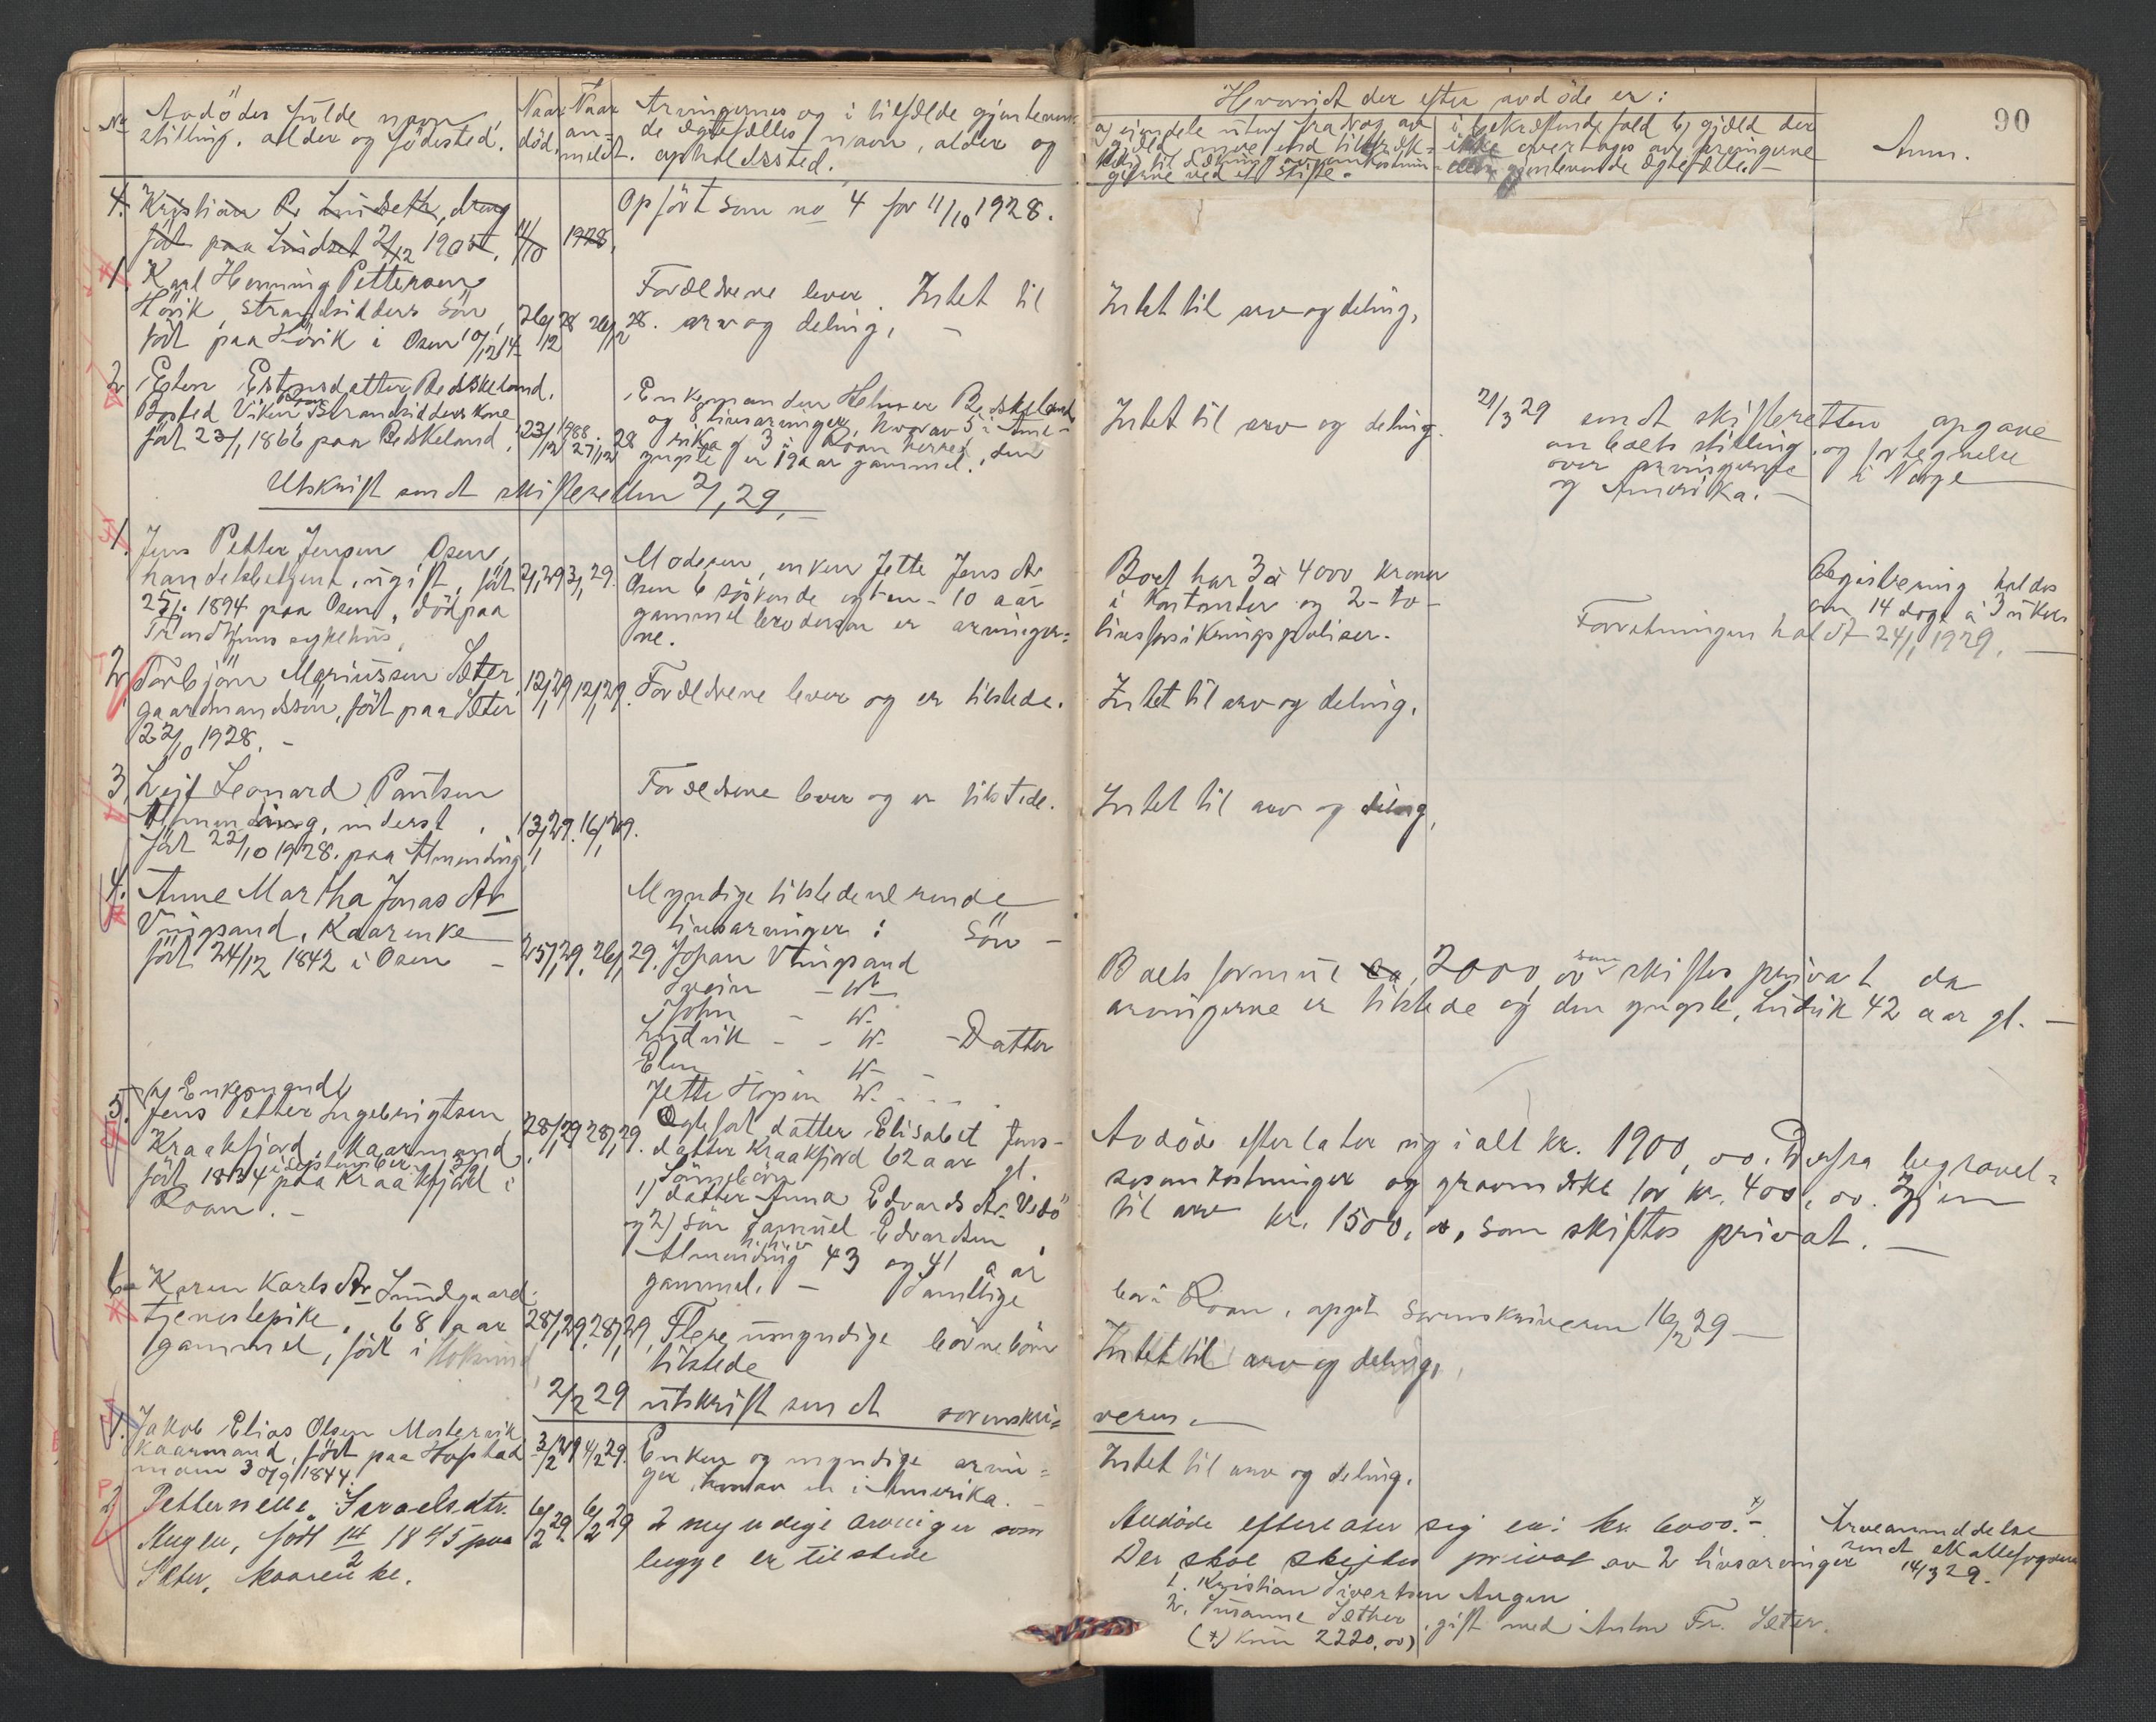 No
Avdödes fulde navn,
stilling, alder og födested.
Naar
död.
Naar
an-
meldt.
Arvingernes og i tilfælde gjenlevende
ægtefælles navn, alder og
opholdssted.
Hvorvidt der efter avdöde er:
a) eiendele uten fradrag av
gjæld mere end tilstræk-
kelig til dækning av omkostnin-
gerne ved et skifte.
i bekræftende fald b) gjæld der
ikke overtages av arvingerne
eller gjenlevende ægtefælle. -
Anm.
90
4. Kristian P. Lindseth, dreng
födt paa Lindset 2/12 1905. 11/10 1928.
Opfört som no 4 for 11/10 1928.
1. Karl Henning Pettersen
Hövik, strandsidders sön,
födt paa Hövik i Osen 10/12 14
26/12 28 26/12 28.
Forældrene lever. Intet til
arv og deling, -
Intet til arv og deling,
2. Elen Estensdatter Bedskeland.
Bosted Viken Osen Strandsidderskone
födt 23/1 1866 paa Beskeland.
23/12 1928 27/12 28
Enkemanden Helmer Beskeland
og 8 livsarvinger, hvorav 5 i Ame-
rika og 3 i Roan herred, den
yngste er 19 aar gammel.
Intet til arv og deling.
21/3 29 sendt skifteretten opgave
om boets stilling og fortegnelse
over arvingerne i Norge
og Amerika. -
Utskrift sendt skifteretten 2/1 29, -
1. Jens Petter Jensen Osen,
handelsbetjent, ugift, födt
25/1 1894 paa Osen, död paa
Trondhjems sykehus,
2/1 29 3/1 29.
Moderen, enken Jette Jens dtr
Osen 6 söskende og en - 10 aar
gammel brodersön er arvinger=
ne.
Boet har 3 à 4000 kroner
i kontanter og 2 - to -
livsforsikringspoliser.
Registrering holdes
om 14 dage à 3 uker
Forretningen holdt 24/1 1929. -
2. Torbjörn Mariussen Sæter
gaardmandssön, födt paa Sæter
22/10 1928. -
12/1 29 12/1 29.
Forældrene lever og er tilstede.
Intet til arv og deling.
3. Leif Leonard Paulsen
Almenning, inderst,
födt 22/10 1928. paa Almenning
13/1 29. 16/1 29.
Forældrene lever og er tilstede.
Intet til arv og deling,
4. Anne Martha Jonas dtr
Vingsand, Kaarenke
födt 24/12 1842 i Osen -
25/1 29. 26/1 29.
Myndige tilstedeværende
livsarvinger: Sön -
Johan Vingsand
Svein - W -
John - W.
Ludvik - - W. - Datter
Elen W -
Jette Hopen W. - - -
Boets formue ca 2000,00 som skiftes privat da
arvingerne er tilstede og den yngste, Ludvik 42 aar gl. -
5. (Enkemand)
Jens Petter Ingebrigtsen
Kraakfjord, Kaarmand
födt 1834 i september paa Kraakfjord i
Roan. -
28/1 29 28/1 29.
Ægtefödt datter Elisabet Jens-
datter Kraakfjord 62 aar gl.
Sönnebörn
1) datter Anna Edvards dtr. Vedö
og 2) sön Samuel Edvardsen
Almenning 43 og 41 aar
gammel. - Samtlige
bor i Roan, opgit sorenskriveren 16/2 29 -
Avdöde efterlater sig i alt kr. 1900,00. Derfra begravel=
sesomkostninger og gravmæle for kr. 400,00. Igjen
til arv kr. 1500,00, som skiftes privat. -
6. Karen Karls dtr Lundgaard
tjenestepike, 68 aar
gammel, födt i
28/1 29. 28/1 29,
Flere umyndige börnebörn
tilstede
Intet til arv og deling,
2/2 29 utskrift sendt sorenskri=
veren. -
1. Jakob Elias Olsen Mostervik
kaarmand, födt paa Hopstad
3/9 1844.
3/2 29 4/2 29.
Enken og myndige arvin=
ger, hvorav en i Amerika. -
Intet til arv og deling.
2. Petternelle Israelsdtr.
Angen, födt 14/2 1845 paa
Sæter, kaarenke.
6/2 29 6/2 29
2 myndige arvinger som
begge er tilstede
Avdöde efterlater sig ca: kr. 6000.- x)
Der skal skiftes privat av 2 livsarvinger
1. Kristian Sivertsen Angen
2. Susanne Sæther, gift med Anton Fr. Sæter.
(x) kun 2220,00)
Arveanmeldelse
sendt skattefogden
14/3 29.